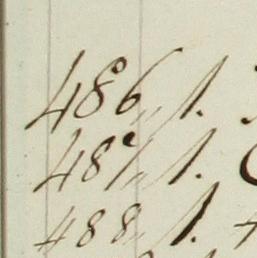 486 „ 1.
487 „ 1.
488 „ 1.